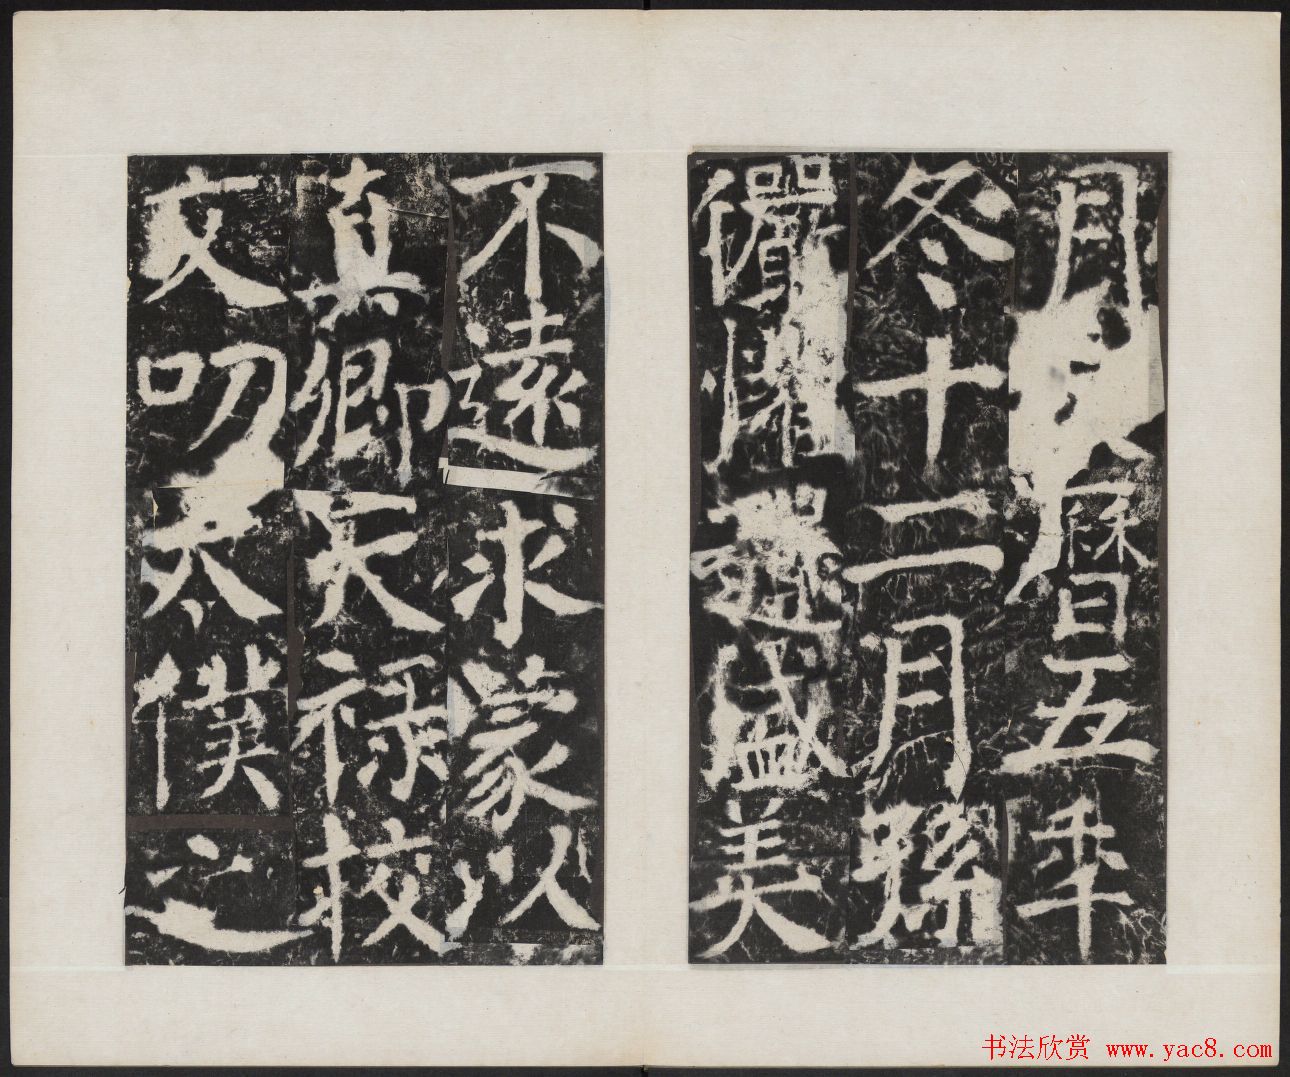 月大曆五年
冬十二月孫
儼遺盛美
不遠求蒙以
真卿天祿校
文叨太僕之
书法欣赏 www.yac8.com